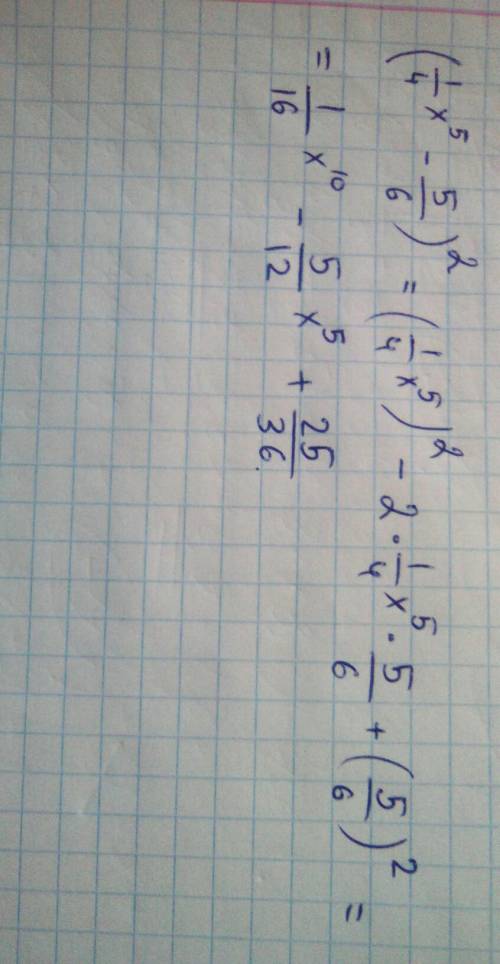 (1/4 x⁵ - 5/6)² = (1/4 x⁵)² - 2 · 1/4 x⁵ · 5/6 + (5/6)² =
= 1/16 x¹⁰ - 5/12 x⁵ + 25/36